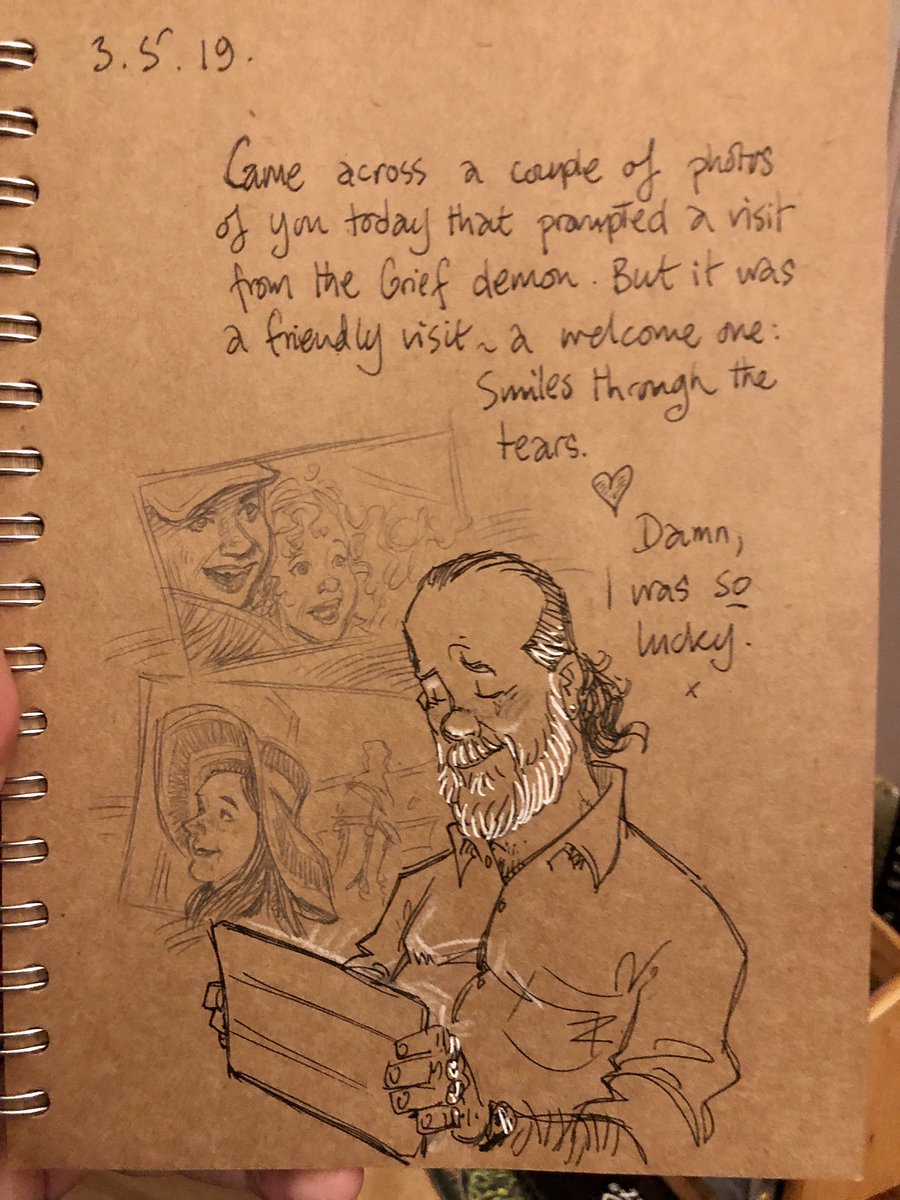 3.5.19.
Came across a couple of photos
of you today that prompted a visit
from the Grief demon. But it was
a friendly visit ~ a welcome one:
Smiles through the
tears.
Damn,
I was so
lucky.
x